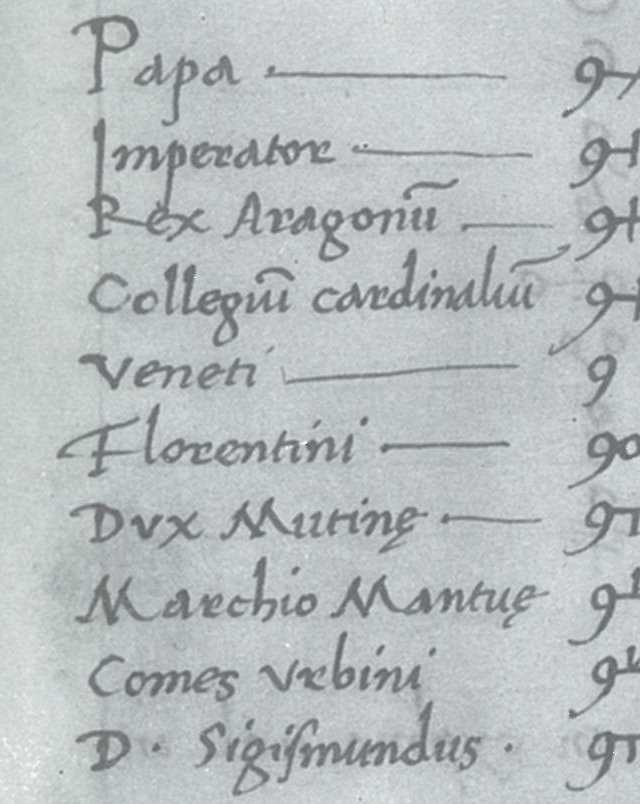 Papa
Imperator
Rex Aragonū
Collegiū cardinaliū
Veneti
Florentini
Dvx Mutinę
Marchio Mantuę
Comes vrbini
D. Sigiſmundus.